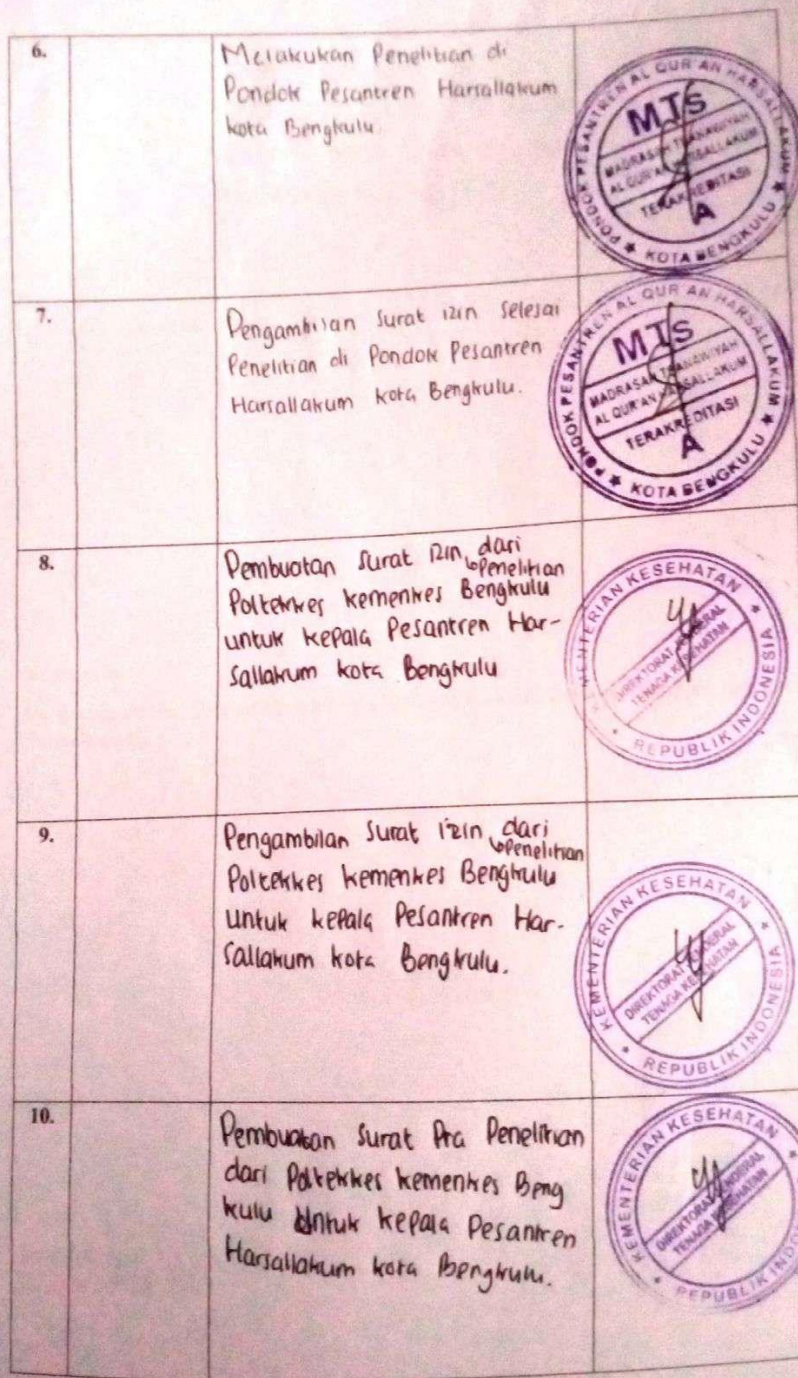 6.
Melakukan Penelitian di
Pondok Pesantren Harsallakum
kota Bengkulu.
PONDOK PESANTREN AL QUR'AN HARSALLAKUM
MTS
MADRASAH TSANAWIYAH
AL QUR'AN HARSALLAKUM
TERAKREDITASI
A
★ KOTA BENGKULU ★
7.
Pengambilan Surat izin Selesai
Penelitian di Pondok Pesantren
Harsallakum kota Bengkulu.
PONDOK PESANTREN AL QUR'AN HARSALLAKUM
MTS
MADRASAH TSANAWIYAH
AL QUR'AN HARSALLAKUM
TERAKREDITASI
A
★ KOTA BENGKULU ★
8.
Pembuatan Surat izin Penelitian dari
Poltekkes kemenkes Bengkulu
untuk kepala Pesantren Har-
sallakum kota Bengkulu
KEMENTERIAN KESEHATAN
DIREKTORAT JENDERAL
TENAGA KESEHATAN
REPUBLIK INDONESIA
9.
Pengambilan Surat izin Penelitian dari
Poltekkes kemenkes Bengkulu
untuk kepala Pesantren Har-
sallakum kota Bengkulu.
KEMENTERIAN KESEHATAN
DIREKTORAT JENDERAL
TENAGA KESEHATAN
REPUBLIK INDONESIA
10.
Pembuatan Surat Pra Penelitian
dari Poltekkes kemenkes Beng
kulu untuk kepala Pesantren
Harsallakum kota Bengkulu.
KEMENTERIAN KESEHATAN
DIREKTORAT JENDERAL
TENAGA KESEHATAN
REPUBLIK INDO